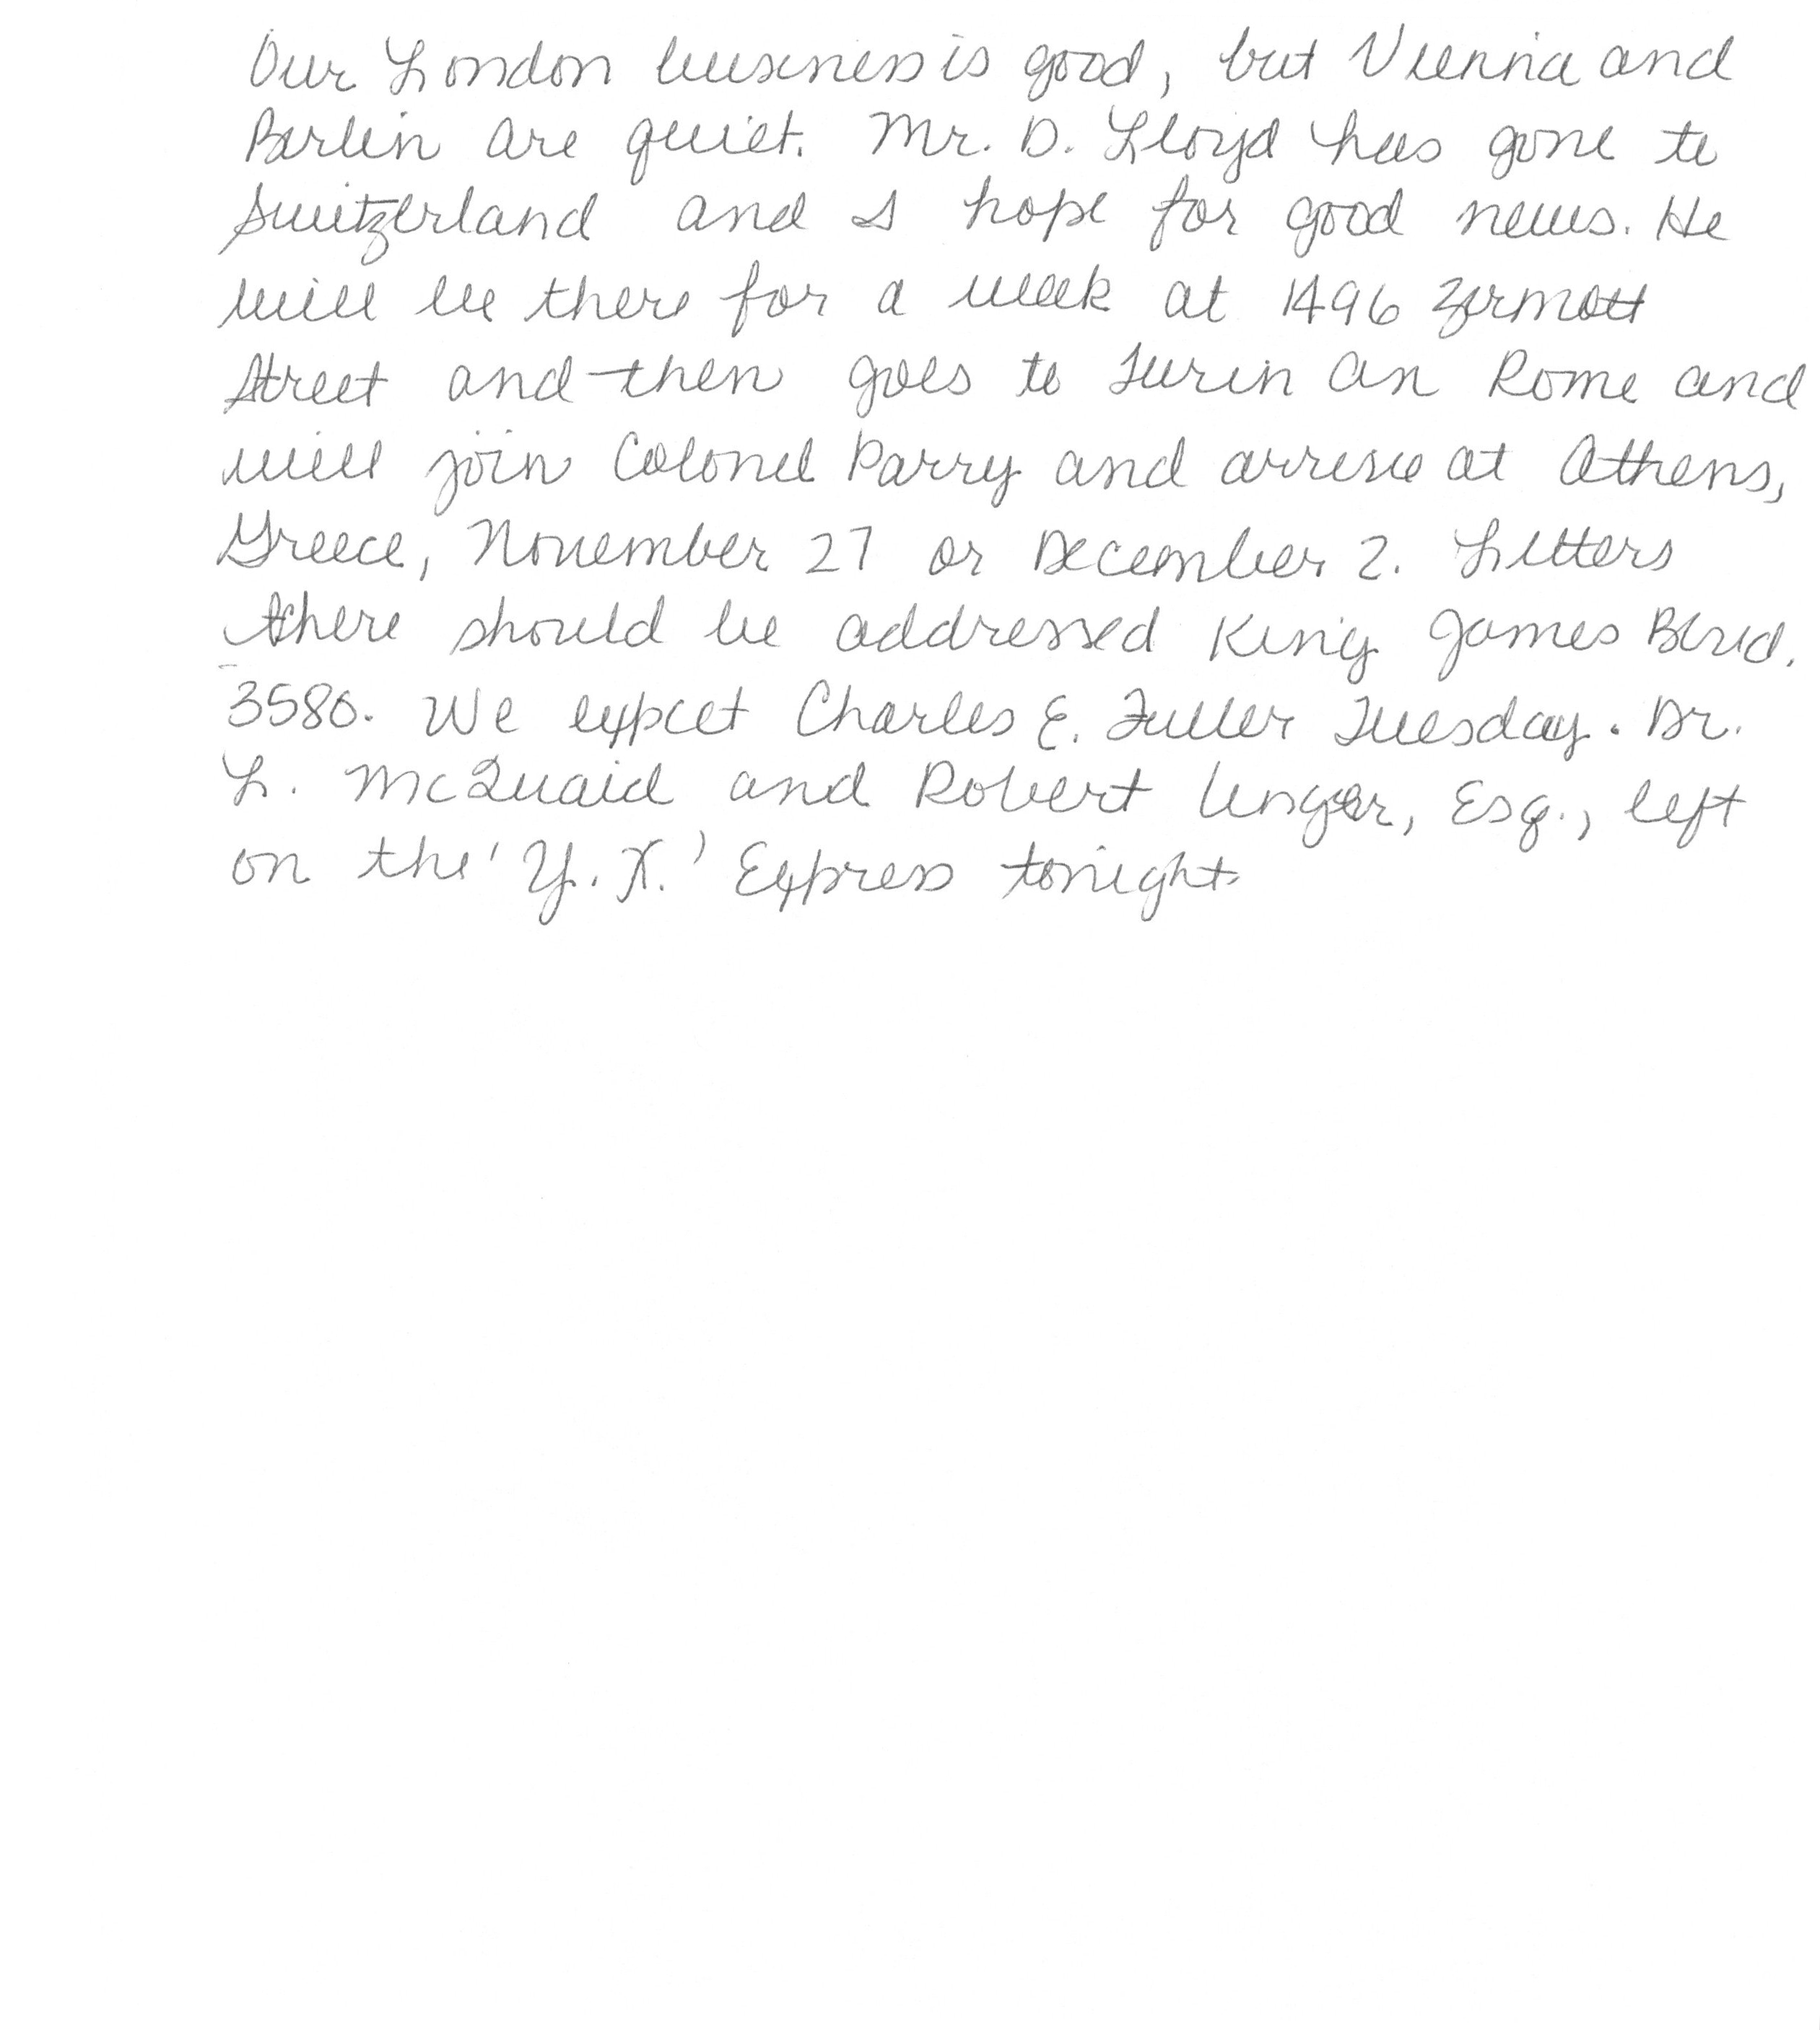 Our London business is good, but Vienna and
Berlin are quiet. Mr. D. Lloyd has gone to
Switzerland and I hope for good news. He
will be there for a week at 1496 Zermott
Street and then goes to Turin an Rome and
will join Colonel Parry and arrive at Athens,
Greece, November 27 or December 2. Letters
there should be addressed King James Blvd.
3580. We expect Charles E. Fuller Tuesday. Dr.
L. McQuaid and Robert Unger, Esq., left
on the 'Y.X.' Express tonight.